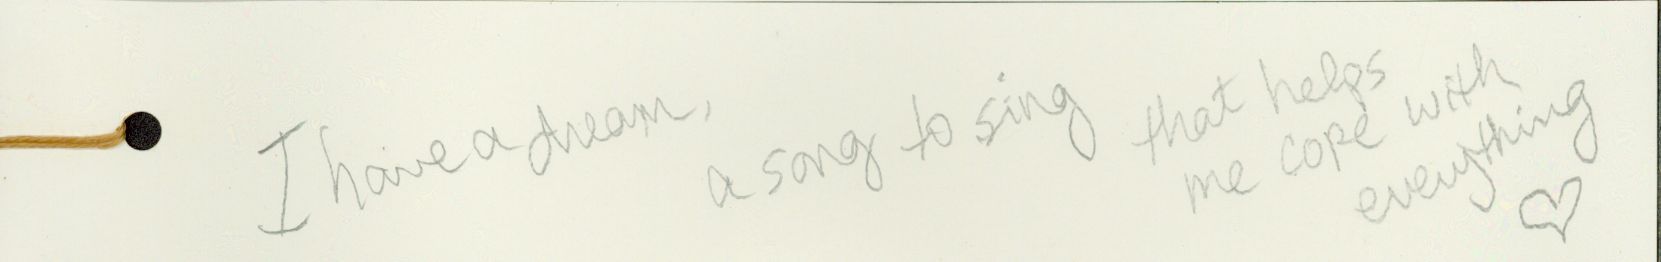 I have a dream,
a song to sing
that helps
me cope with
everything